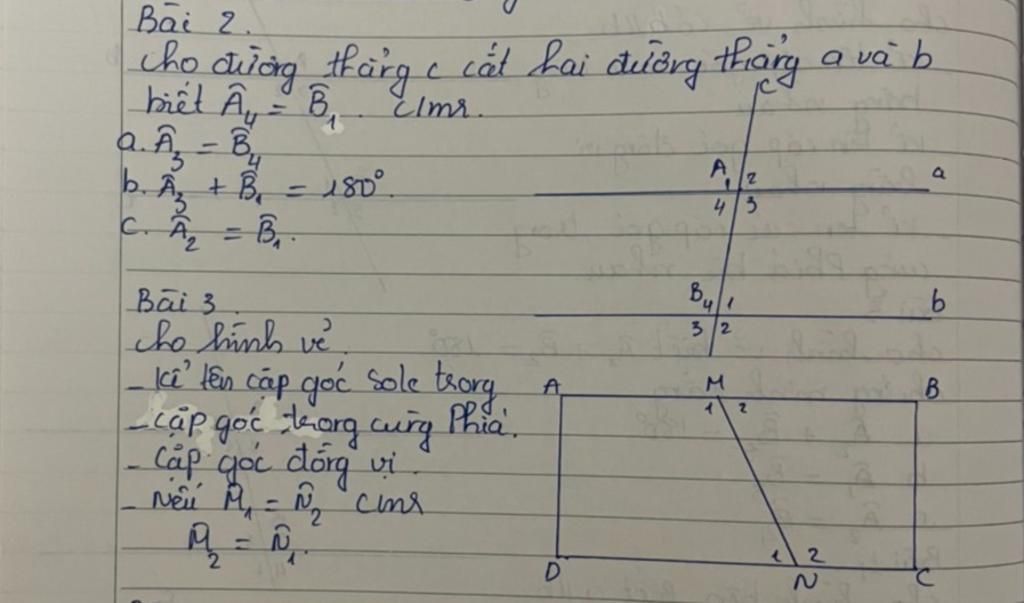 Bài 2.
cho đường thẳng c cắt hai đường thẳng a và b
biết Â₄ = B̂₁. c/mr.
a. Â₃ = B̂₄
b. Â₃ + B̂₁ = 180°.
c. Â₂ = B̂₁.
c
A 1 2 a
4 3
B 4 1 b
3 2
Bài 3
cho hình vẽ.
- kể tên cặp góc sole trong
- cặp góc trong cùng Phía.
- cặp góc đồng vị.
- nếu M̂₁ = N̂₂ cmr
M̂₂ = N̂₁.
A M B
1 2
1 2
D N C